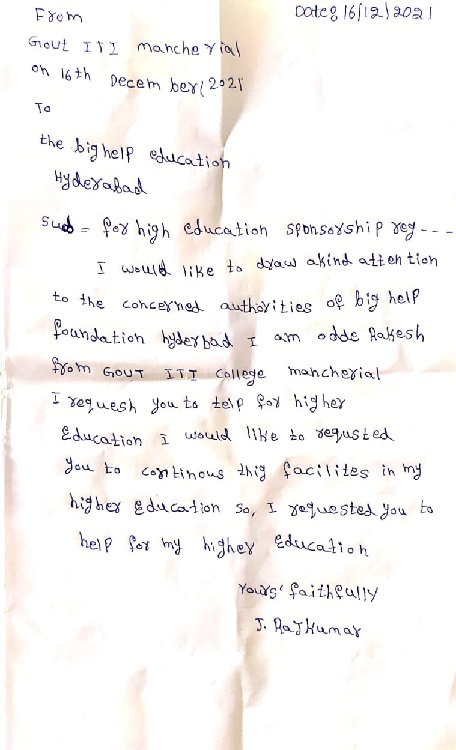 From
Date: 16/12/2021
Govt ITI mancherial
on 16th December/2021
To
the big help education
Hyderabad
Sub = for high education sponsorship reg----
I would like to draw akind attention
to the concerned authorities of big help
foundation hyderbad I am odde Rakesh
from Govt ITI College mancherial
I requesh you to telp for higher
Education I would like to requsted
you to continous thig facilites in my
higher Education so, I requested you to
help for my higher Education
Yours' faithfully
J. RajKumar